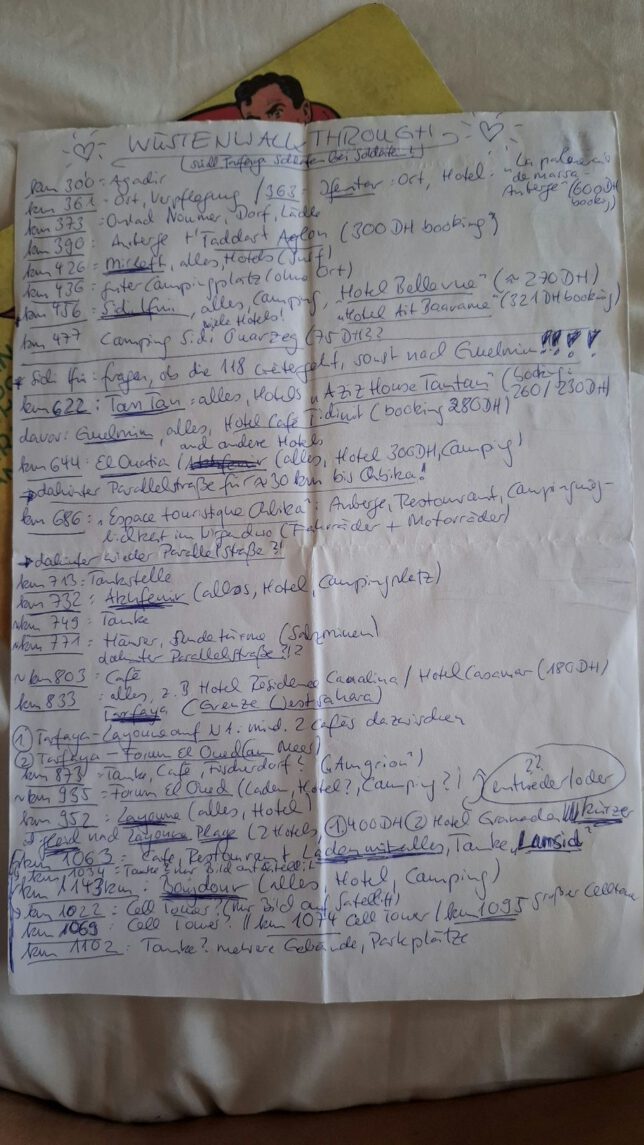 WÜSTENWALKTHROUGH
(südl. Tarfaya schlafen bei Soldaten!)
km 300 = Agadir
km 361 = Ort, Verpflegung / 363 = : Ort, Hotel = "La palmeraie de massa
Auberge" (600DH booking)
km 373 = Oulad Noumer, Dorf, Läden
km 390 = Auberge "Taddart Aglou (300 DH booking)
km 426 = Mirleft, alles, Hotels (Surf)
km 436 = guter Campingplatz (ohne Ort)
km 456 = Sidi Ifni, alles, Camping, "Hotel Bellevue" (≈ 270DH)
viele Hotels! "Hotel Ait Baarame" (321 DH booking)
km 477 Camping Sidi Ouarzeg (75 DH??
Sidi Ifni: fragen, ob die 118 weitergeht, sonst nach Guelmim!!!!
km 622 : TanTan = alles, Hotels "Aziz House Tantan" (booking 260/230DH)
davor: Guelmim, alles, Hotel Café Tidinit (booking 280DH)
und andere Hotels
km 644 : El Ouatia (alles, Hotel 300DH, Camping)
→ dahinter Parallelstraße für ≈ 30 km bis Chbika!
km 686 : "Espace touristique Chbika": Auberge, Restaurant, Campingmög-
lichkeit im Nirgendwo (Fahrräder + Motorräder)
→ dahinter wieder Parallelstraße?!
km 713 = Tankstelle
km 732 = Akhfenir (alles, Hotel, Campingplatz)
≈km 749 = Tanke
≈km 771 = Häuser, Funktürme (Salzminen)
dahinter Parallelstraße?!?
≈ km 803 = Café
km 833 = alles, z.B Hotel Résidence Canalina / Hotel Casamar (180DH)
Tarfaya (Grenze Westsahara)
① Tarfaya-Layoune auf N1. mind. 2 Cafés dazwischen
② Tarfaya - Foum El Oued (am Meer)
km 873 = Tanke, Café, Fischerdorf? ("Amgriou")
≈km 935 = Foum El Oued (Laden, Hotel?, Camping?) ?? entweder/oder
km 952 = Layoune (alles, Hotel) ① 400DH ② Hotel Granada /// kürzer
und Layoune Plage (2 Hotels,
km 1063 = Café, Restaurant, Laden mit alles, Tanke "Lamsid"?
km 1034 = Tanke? nur Bild auf Satellit
km 1143km = Boujdour (alles, Hotel, Camping)
→ km 1022 = Cell Tower? (nur Bild auf Satellit)
km 1069 = Cell Tower? // km 1074 Cell Tower / km 1095 großer Celltower
km 1102 = Tanke? mehrere Gebäude, Parkplätze